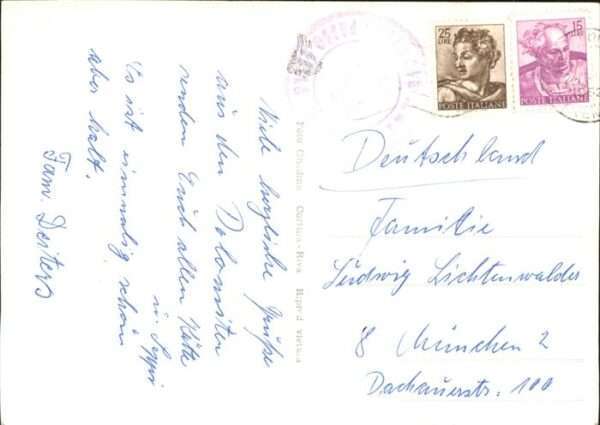 Viele herzliche Grüße
aus den Dolomiten
senden Euch allen Käte
u. Seppi
Es ist einmalig schön
aber kalt.
Fam. Deiters
Foto Ghedina Cortina - Riva Riprod. vietata
25
LIRE
POSTE ITALIANE
15
LIRE
POSTE ITALIANE
Deutschland
Familie
Ludwig Lichtenwalder
8 München 2
Dachauerstr. 100